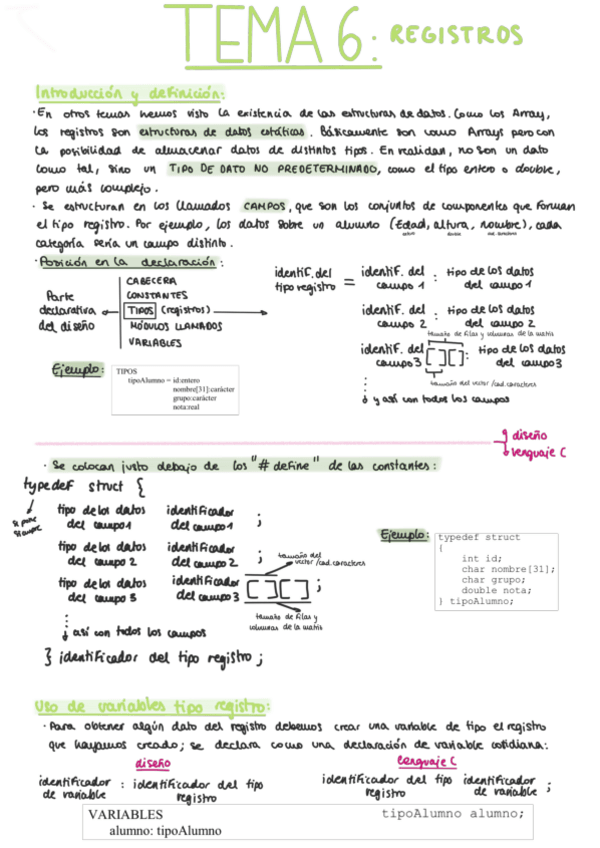 TEMA 6: REGISTROS
Introducción y definición:
· En otros temas hemos visto la existencia de las estructuras de datos. Como los Array,
los registros son estructuras de datos estáticas. Básicamente son como Arrays pero con
la posibilidad de almacenar datos de distintos tipos. En realidad, no son un dato
como tal, sino un TIPO DE DATO NO PREDETERMINADO, como el tipo entero o double,
pero más complejo.
· Se estructuran en los llamados CAMPOS, que son los conjuntos de componentes que forman
el tipo registro. Por ejemplo, los datos sobre un alumno (Edad, altura, nombre), cada
categoría sería un campo distinto.
· Posición en la declaración:
Parte declarativa del diseño
CABECERA
CONSTANTES
TIPOS (registros)
MÓDULOS LLAMADOS
VARIABLES
identif. del tipo registro = identif. del campo 1 : tipo de los datos del campo 1
identif. del campo 2 : tipo de los datos del campo 2
tamaño de filas y columnas de la matriz
identif. del campo 3 [ ] [ ] : tipo de los datos del campo 3
tamaño del vector /cad. caracteres
y así con todos los campos
Ejemplo:
TIPOS
tipoAlumno = id:entero
nombre[31]:carácter
grupo:carácter
nota:real
diseño
lenguaje C
· Se colocan justo debajo de los "# define" de las constantes:
typedef struct {
se pone siempre
tipo de los datos del campo 1 identificador del campo 1 ;
tipo de los datos del campo 2 identificador del campo 2 ;
tamaño del vector /cad. caracteres
tipo de los datos del campo 3 identificador del campo 3 [ ] [ ] ;
tamaño de filas y columnas de la matriz
así con todos los campos
} identificador del tipo registro ;
Ejemplo:
typedef struct
{
int id;
char nombre[31];
char grupo;
double nota;
} tipoAlumno;
Uso de variables tipo registro:
· Para obtener algún dato del registro debemos crear una variable de tipo el registro
que hayamos creado; se declara como una declaración de variable cotidiana:
diseño
identificador de variable : identificador del tipo registro
lenguaje C
identificador del tipo registro identificador de variable ;
VARIABLES
alumno: tipoAlumno
tipoAlumno alumno;